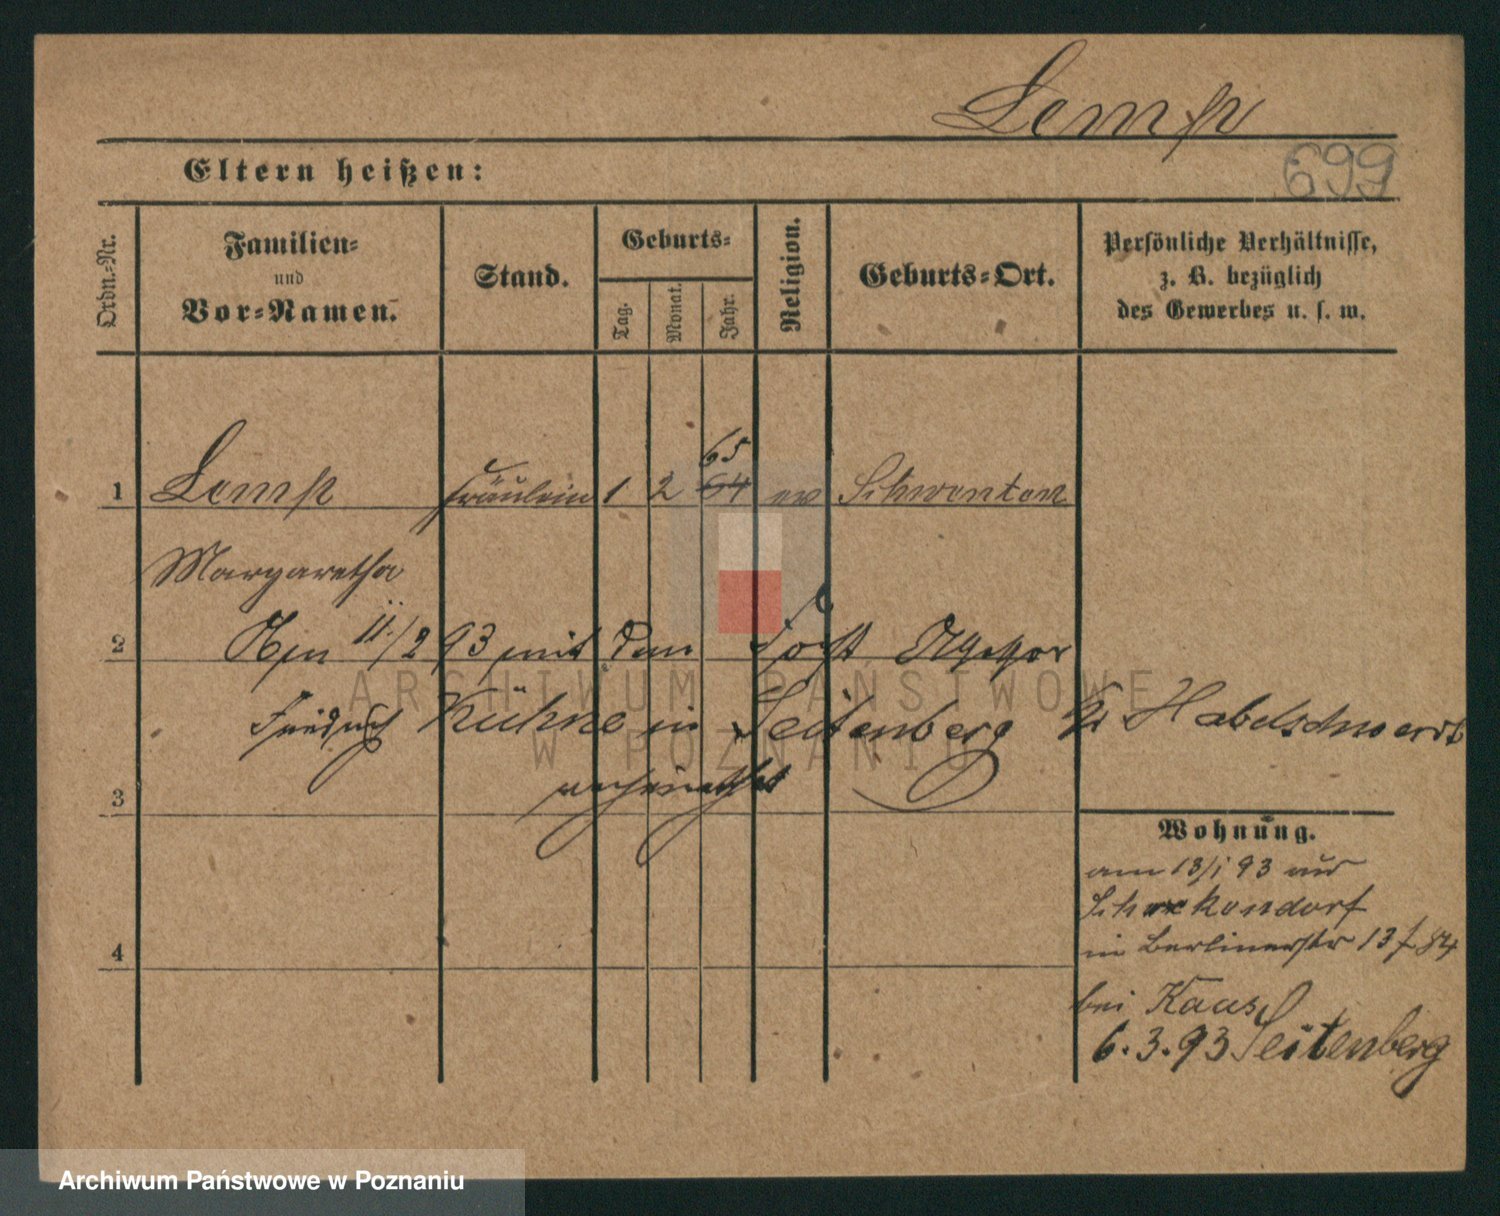 Lemp
699
Eltern heißen:
Ordn.-Nr.
Familien-
und
Vor-Namen.
Stand.
Geburts-
Tag.
Monat.
Jahr.
Religion.
Geburts-Ort.
Persönliche Verhältnisse,
z. B. bezüglich
des Gewerbes u. s. w.
65
1 Lemp Fräulein 1 2 64 ev Schwenten
Margaretha
2 Am 11./2 93 mit dem Forst Assessor
Friedrich Kühne in Seitenberg Kr Habelschwerdt
3 verheirathet
4
Wohnung.
am 13/1 93 aus
in Berlinerstr 13
bei Kaus
6.3.93 Seitenberg
ARCHIWUM PAŃSTWOWE
W POZNANIU
Archiwum Państwowe w Poznaniu